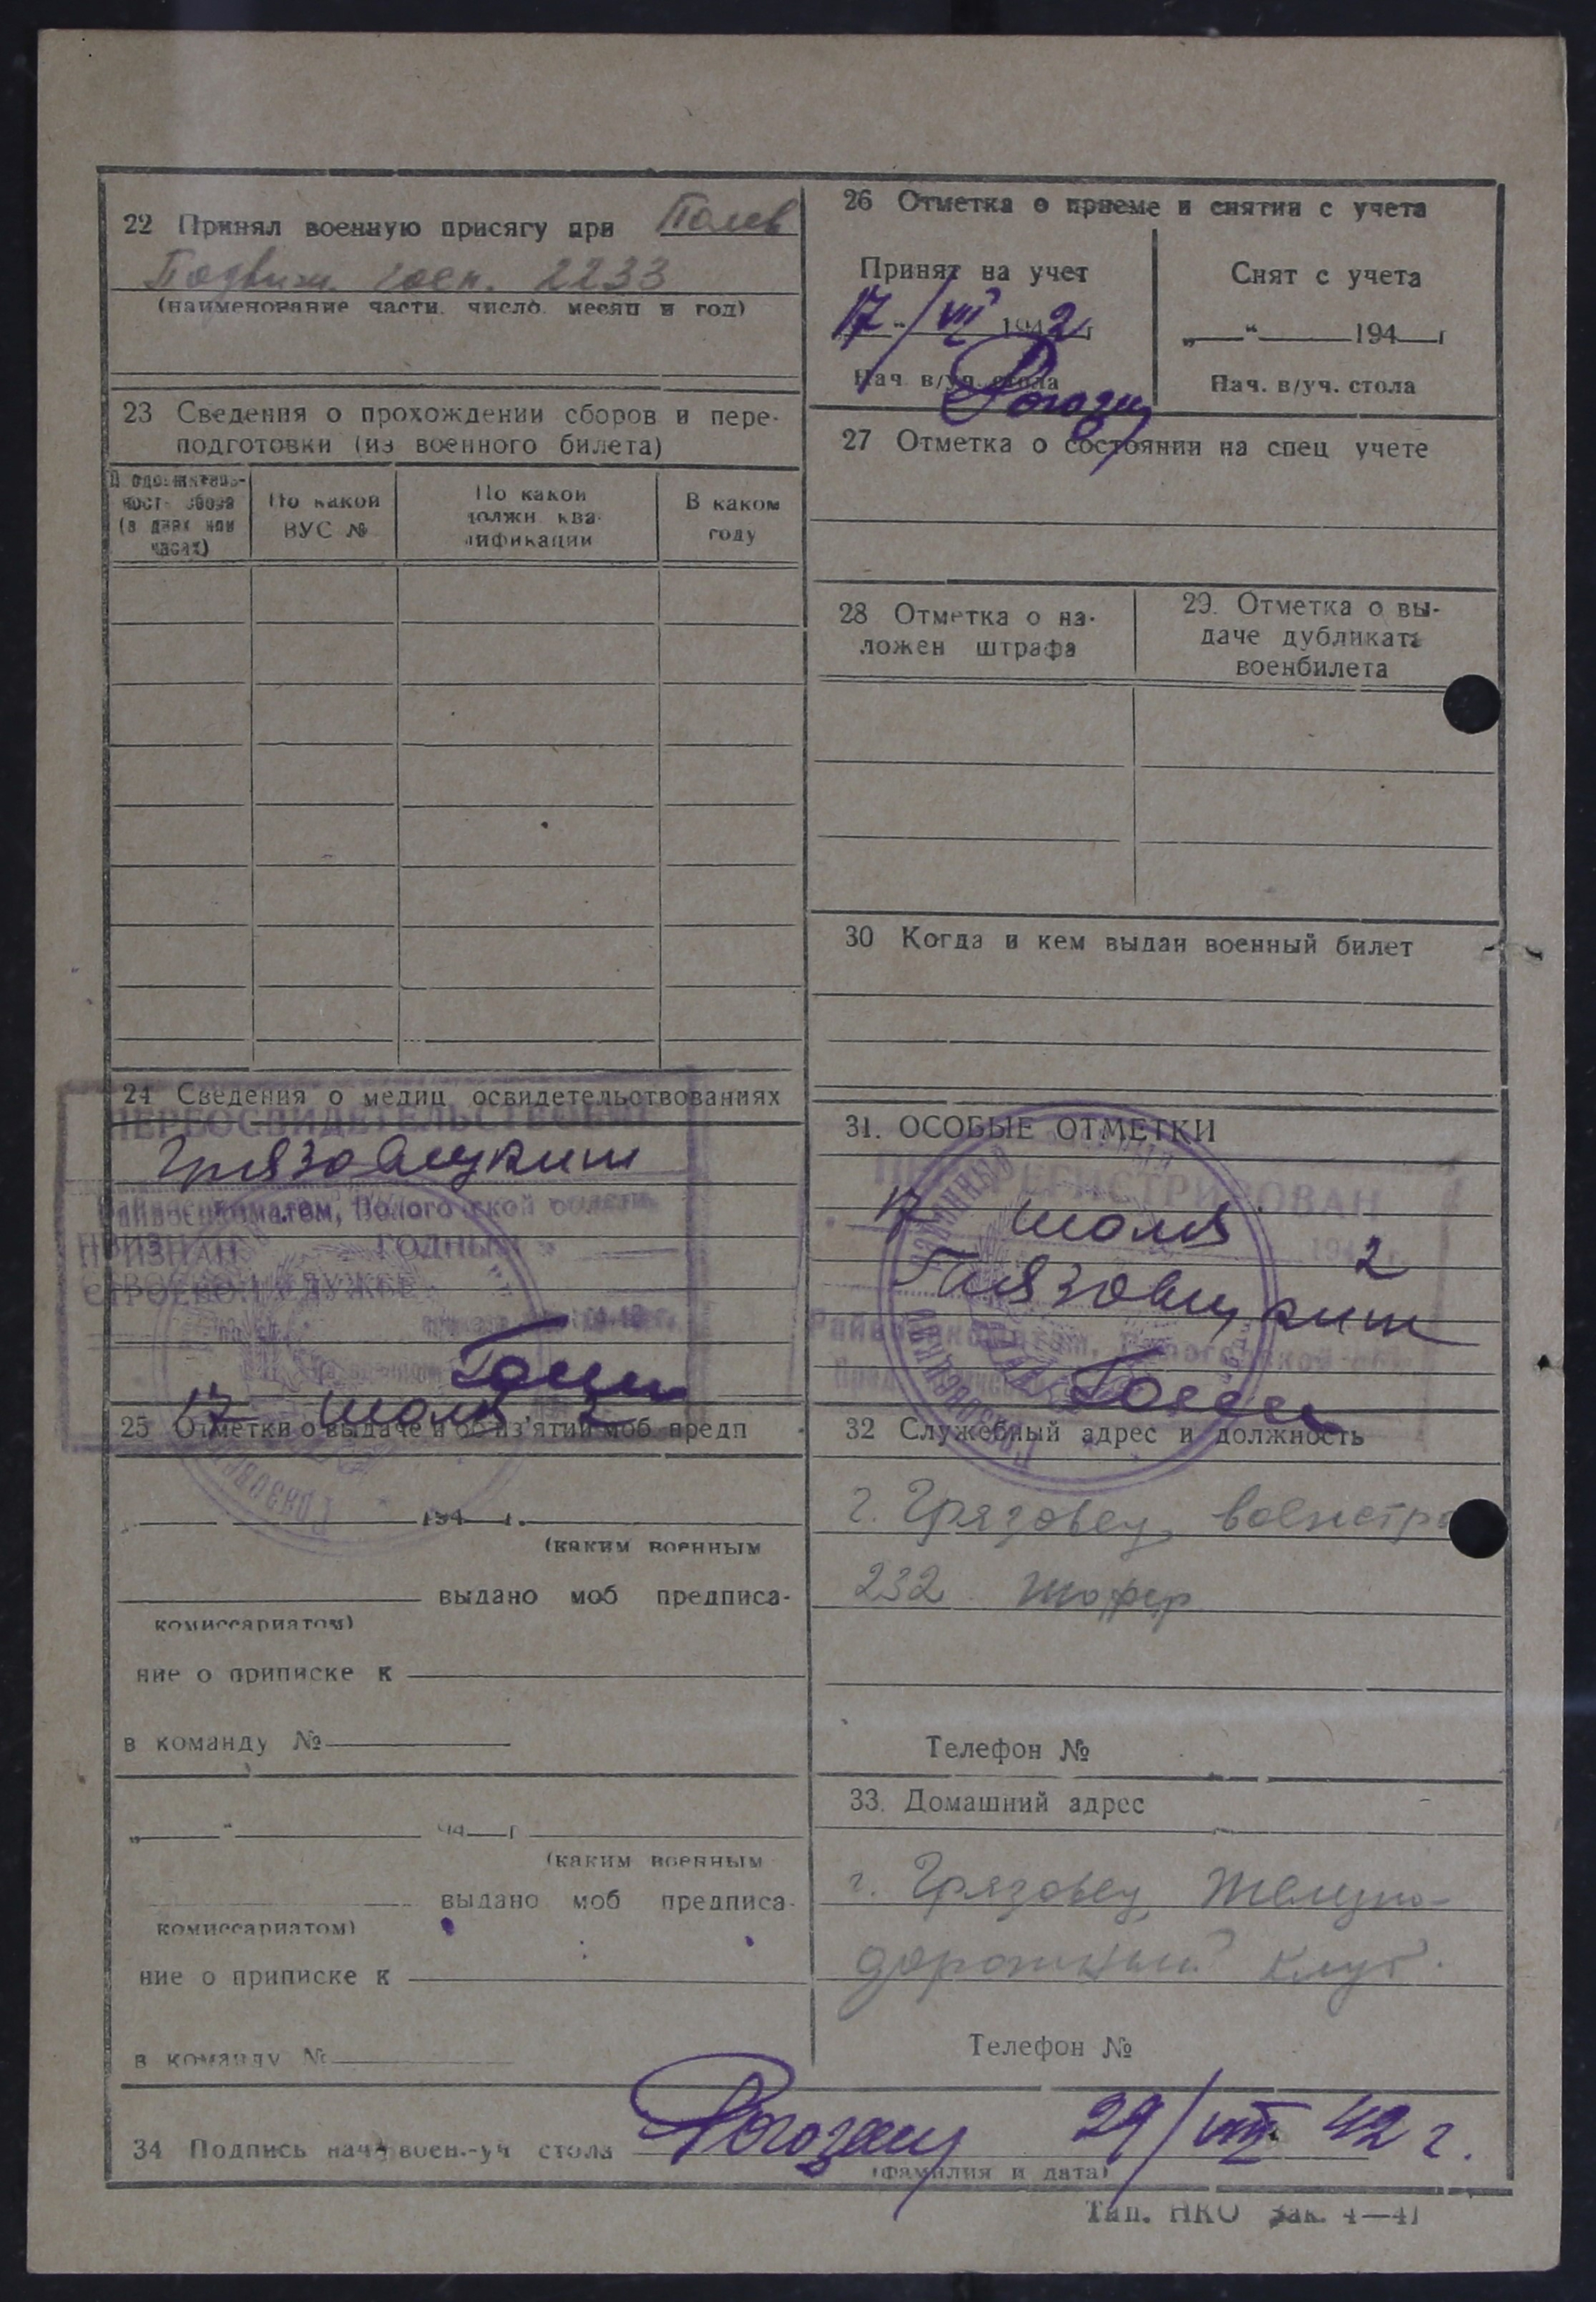 22 Принял военную присягу при Полев
Подвиж. госп. 2233
(наименование части, число, месяц и год)
23 Сведения о прохождении сборов и пере-
подготовки (из военного билета)
Продолжитель-
ность сбора
(в днях или
часах)
По какой
ВУС №
По какой
должн. ква-
лификации
В каком
году
24 Сведения о медиц освидетельствованиях
ПЕРЕОСВИДЕТЕЛЬСТВОВАН
Грязовецким
Райвоенкоматом, Вологодской области
ПРИЗНАН ГОДНЫМ
СТРОЕВОЙ СЛУЖБЕ
17 июля 2
25 Отметки о выдаче и об из'ятии моб. предп
194 г.
(каким военным
выдано моб предписа-
комиссариатом)
ние о приписке к
в команду №
„ “ 194 г
(каким военным
выдано моб предписа-
комиссариатом)
ние о приписке к
в команду №
26 Отметка о приеме и снятии с учета
Принят на учет
17/VII 1942 г
Нач. в/уч. стола
Снят с учета
„ “ 194 г
Нач. в/уч. стола
27 Отметка о состоянии на спец учете
28 Отметка о на-
ложен штрафа
29. Отметка о вы-
даче дубликата
военбилета
30 Когда и кем выдан военный билет
31. ОСОБЫЕ ОТМЕТКИ
ПЕРЕРЕГИСТРИРОВАН
17 июля 194 2
Грязовецким
Райвоенкоматом, Вологодской обл.
32 Служебный адрес и должность
г. Грязовец,
232 шофер
Телефон №
33. Домашний адрес
г. Грязовец, Железно-
дорожный клуб.
Телефон №
34 Подпись нач. воен.-уч стола 29/VII 42 г.
(фамилия и дата)
Тип. НКО Зак. 4—41